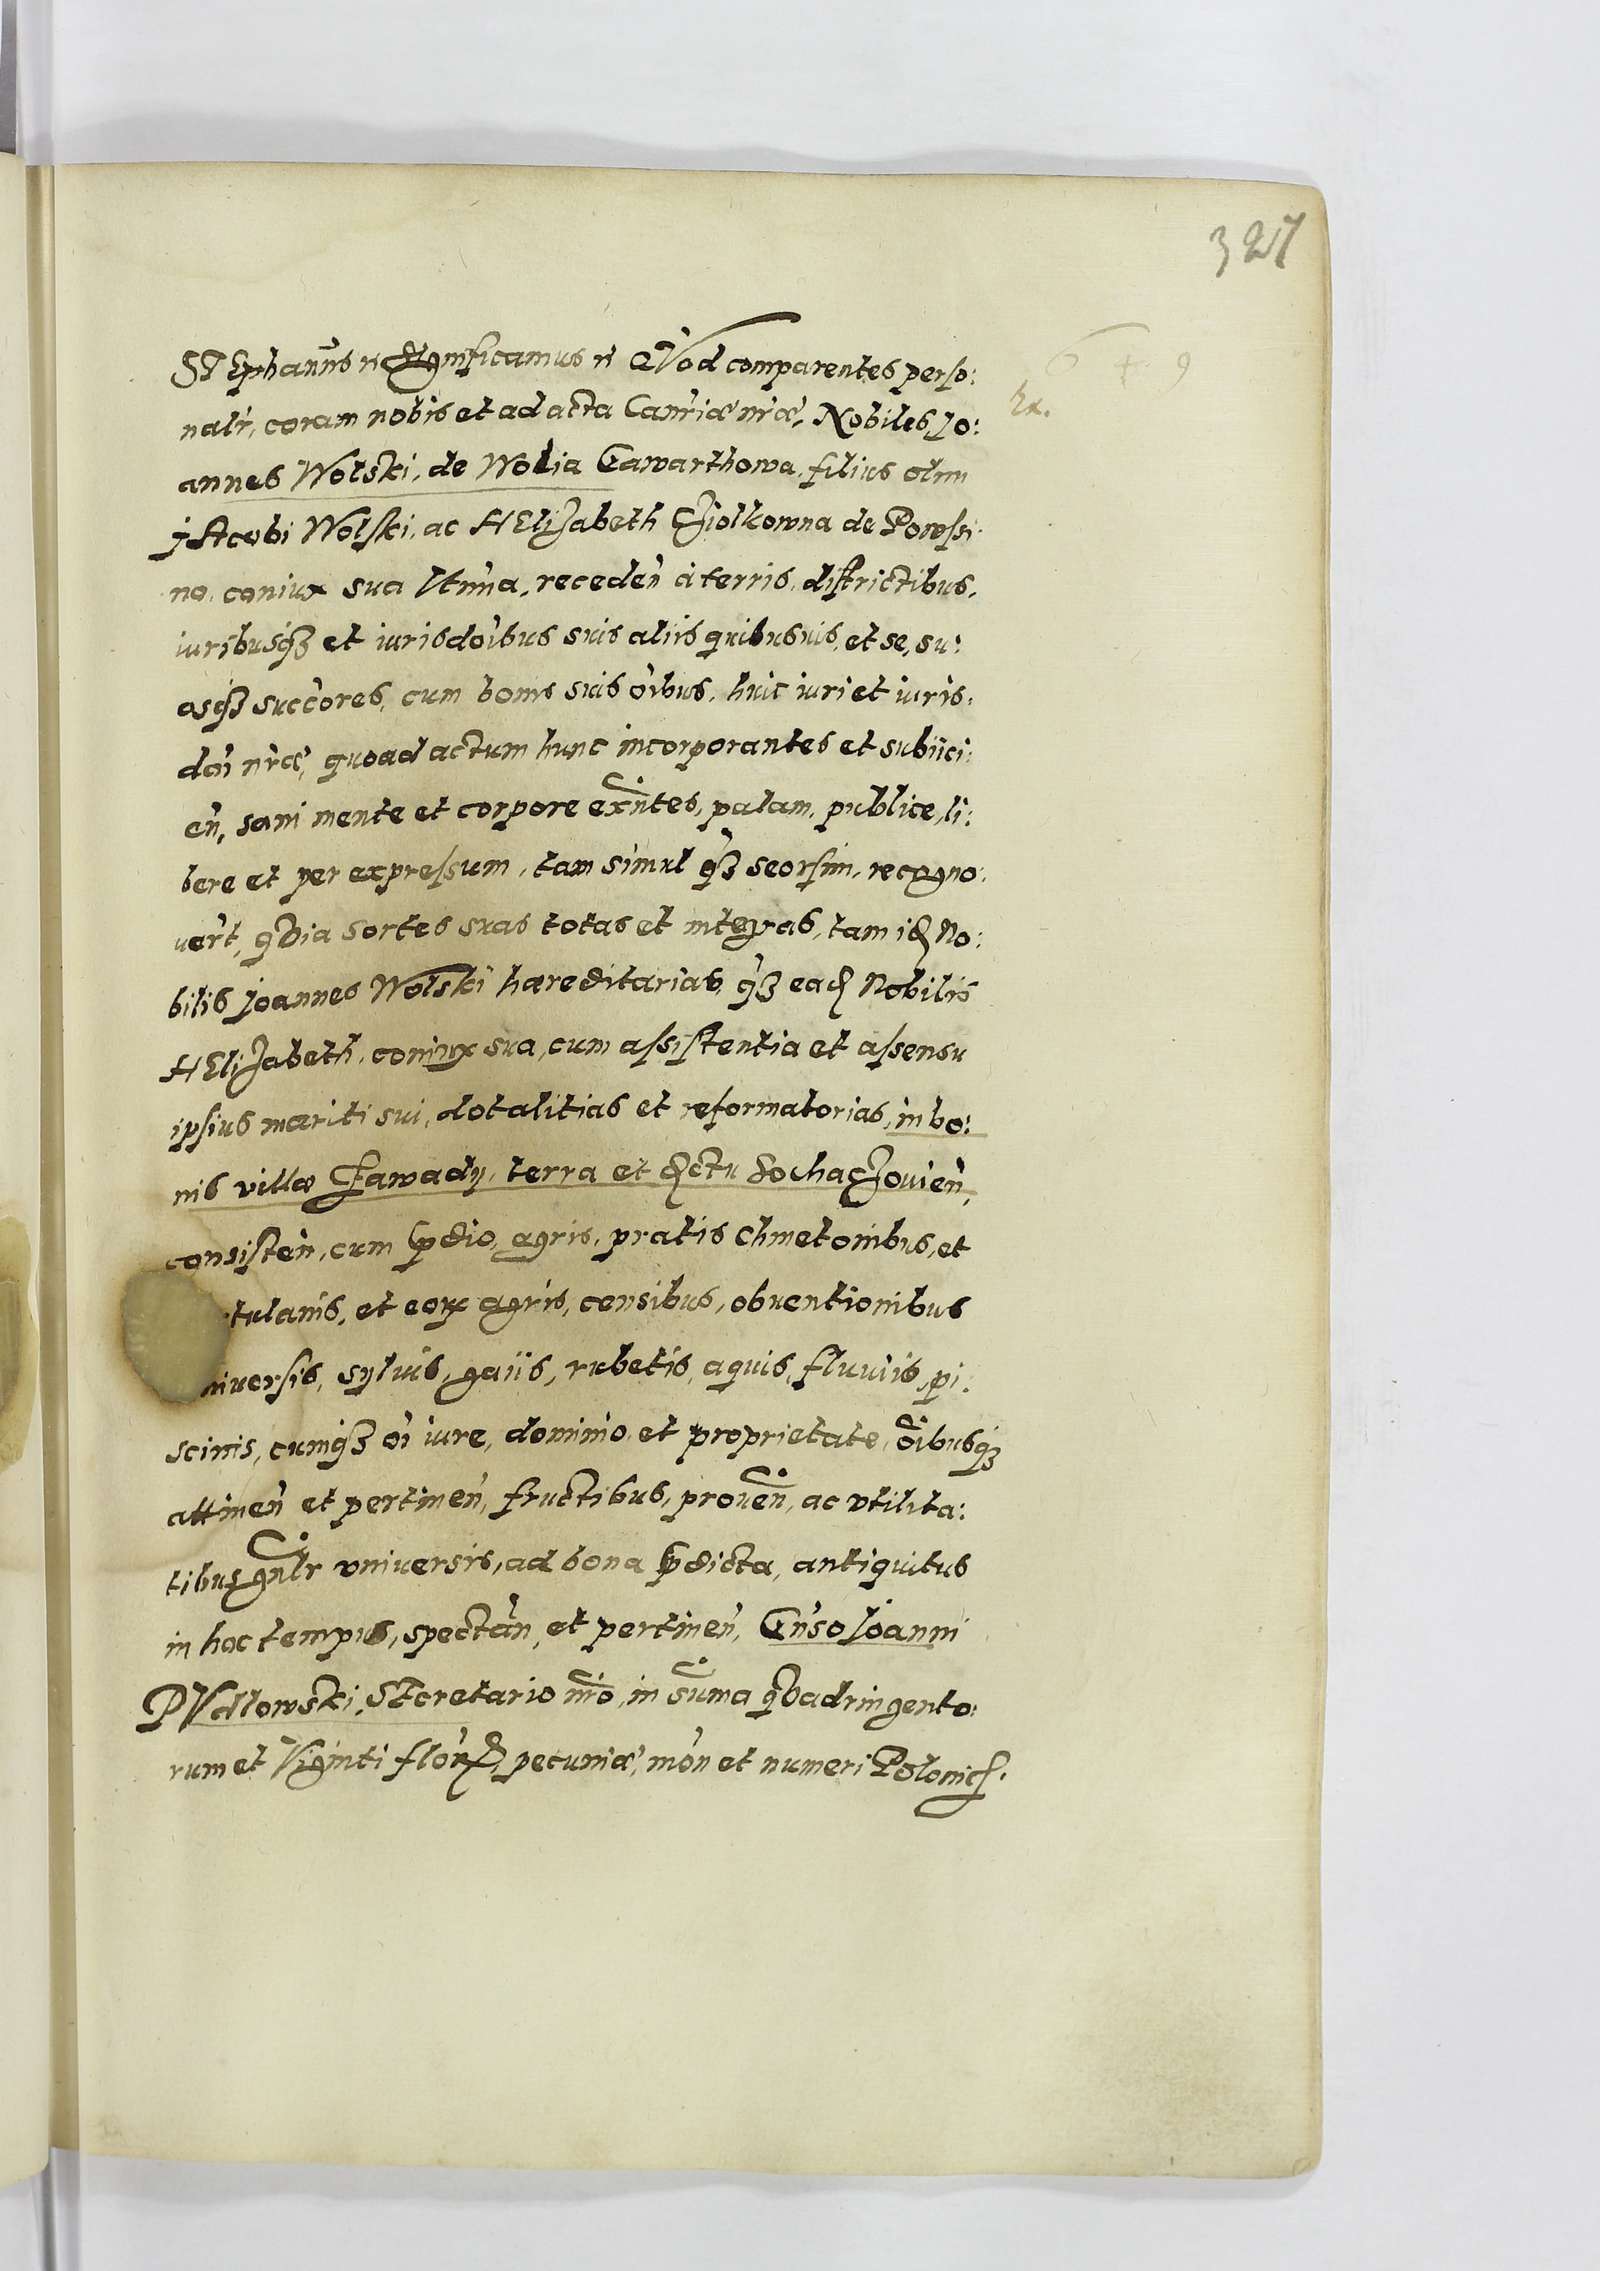 327
6 + 9
Ex.
STEphanus etc Significamus etc QVod comparentes perso:
nalr, coram nobis et ad acta Canriæ nræ, Nobiles Jo:
annes Wolski, de Wolia Gawarthowa, filius olim
JAcobi Wolski, ac HElizabeth Cziolkowna de Powssi:
no, coniux sua ltima, receden à terris, districtibus,
iuribusq3 et iurisdoibus suis aliis quibusuis, et se, su:
osq3 succores, cum bonis suis oibus, huic iuri et iuris:
doi nræ, quoad actum hunc incorporantes et subiici:
en, sani mente et corpore exntes, palam, publice, li:
bere et per expressum, tam simul q3 seorsim, recogno:
uert, qVia sortes suas totas et integras, tam id No:
bilis Joannes Wolski hæreditarias, q3 ead Nobilis
HElizabeth, coniux sua, cum assistentia et assensu
ipsius mariti sui, dotalitias et reformatorias, in bo:
nis villæ Zawady, terra et dctu Sochaczouien,
consisten, cum pdio, agris, pratis Chmetonibus, et
tulanis, et eorx agris, censibus, obuentionibus
niuersis, syluis, gaiis, rubetis, aquis, fluuiis, pi:
scinis, cumq3 oi iure, dominio et proprietate, oibusq3
attinen et pertinen, fructibus, prouen, ac vtilita:
tibus gnlr vniuersis, ad bona pdicta, antiquitus
in hoc tempus, spectan, et pertinen, Gnso Joanni
PVdlowski, SEcretario nro, in suma qVadringento:
rum et Viginti flor, pecuniæ, mon et numeri Polonic